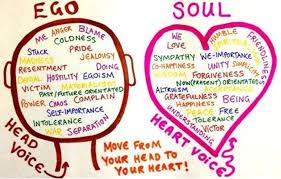 EGO
ME ANGER BLAME
COLDNESS
STUCK PRIDE
MADNESS JEALOUSY
RESENTMENT DOING
DENIAL HOSTILITY EGOISM
VICTIM MATERIALISM
PAST/FUTURE ORIENTATED
POWER CHAOS COMPLAIN
SELF-IMPORTANCE
INTOLERANCE
WAR SEPARATION
HEAD
VOICE
SOUL
WE HUMBLE FRIENDLINESS
LOVE SPIRITUALISM
SYMPATHY WE-IMPORTANCE
HAPPINESS UNITY SIMPLICITY
WISDOM FORGIVENESS
NOW (PRESENT) ORIENTATED
ALTRUISM ACCEPTANCE
GRATEFULNESS BEING
HAPPINESS PEACE FREE
UNDERSTANDING TOLERANCE
VICTOR
HEART VOICE
MOVE FROM
YOUR HEAD TO
YOUR HEART!